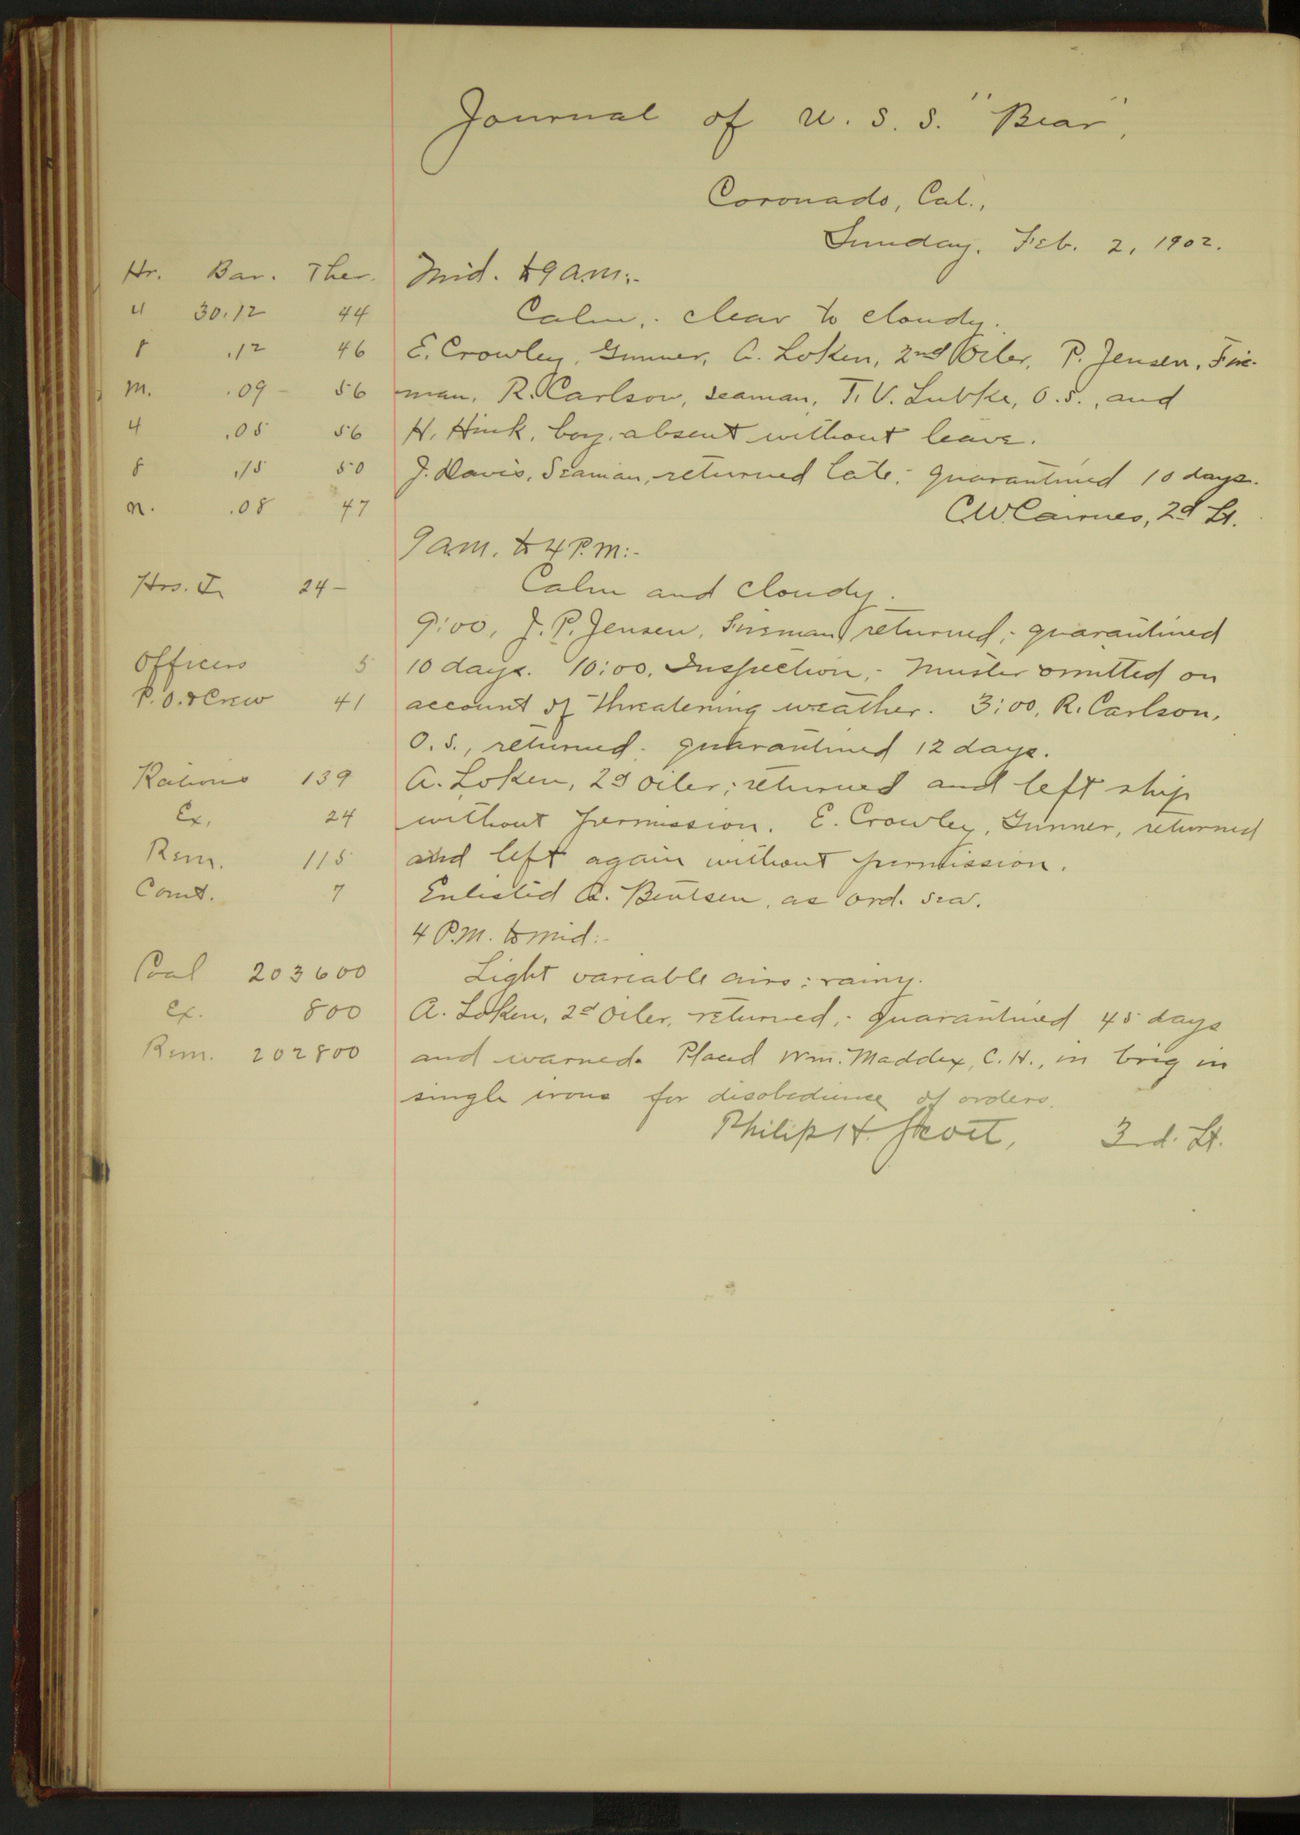 Journal of U. S. S. "Bear",
Coronado, Cal.,
Sunday, Feb. 2, 1902.
Hr. Bar. Ther. Mid. to 9 a.m:-
4 30.12 44 Calm,- clear to cloudy.
8 .12 46 E. Crowley, Gunner, A. Loken, 2nd Oiler, P. Jensen, Fire-
M. .09 - 56 man, R. Carlson, seaman, T. V. Lubke, O. S., and
4 .05 56 H. Hink, boy, absent without leave.
8 .15 50 J. Davis, Seaman, returned late;- quarantined 10 days.
n. .08 47 C.W. Cairnes, 2d Lt.
9 a.m. to 4 P.m:-
Hrs. I. 24 - Calm and cloudy.
9:00, J. P. Jensen, Fireman returned;- quarantined
Officers 5 10 days. 10:00, Inspection,- Muster omitted on
P.O. & Crew 41 account of threatening weather. 3:00, R. Carlson,
O. S., returned. quarantined 12 days.
Rations 139 A. Loken, 2d Oiler; returned and left ship
Ex. 24 without permission. E. Crowley, Gunner, returned
Rem. 115 and left again without permission.
Comt. 7 Enlisted A. Bentsen, as Ord. sea.
4 P.M. to mid:-
Coal 203600 Light variable airs: rainy.
Ex. 800 A. Loken, 2d Oiler, returned,- quarantined 45 days
Rem. 202800 and warned. Placed Wm. Maddex, C. H., in brig in
single irons for disobedience of orders.
Philip H. Scott, 3rd. Lt.